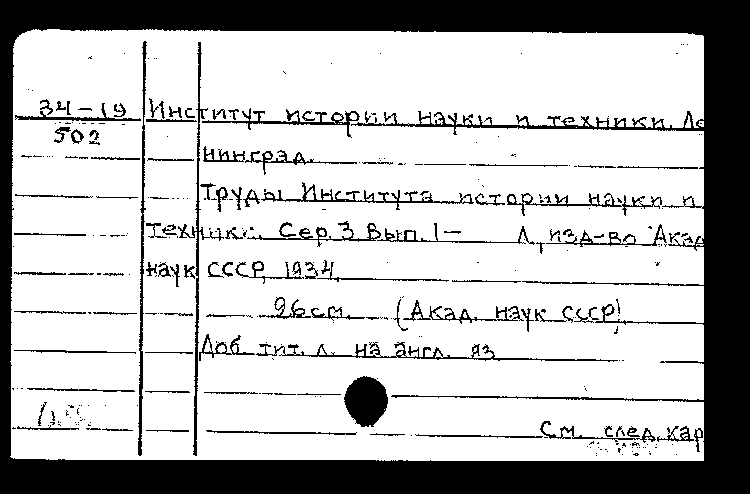 34-19 Институт истории науки и техники. Ле
502
нинград.
Труды Института истории науки и
техники. Сер. 3 Вып. 1— Л, изд-во Акад
наук СССР, 1934.
26 см. (Акад. наук СССР)
Доб. тит. л. на англ. яз
См. след. кар